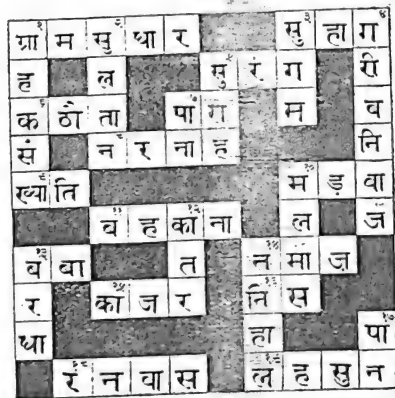 ग्रा म सु धा र सु हा ग
ह ल सु रं ग री
क ठौ ता पा ग म ब
सं न र ना ह नि
ख्या ति म ड़ वा
ब ह का ना ल ज
ब बा त न मा ज़
र का ज र नि स
धा हा पा
र न वा स ल ह सु न